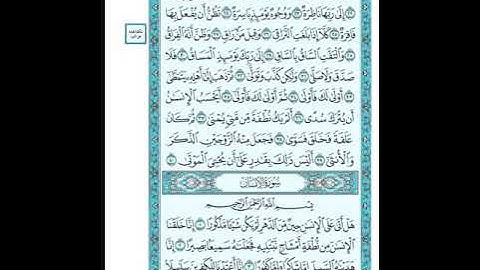 إِلَىٰ رَبِّهَا نَاظِرَةٌ ٢٣ وَوُجُوهٌ يَوْمَئِذٍ بَاسِرَةٌ ٢٤ تَظُنُّ أَن يُفْعَلَ بِهَا
فَاقِرَةٌ ٢٥ كَلَّا إِذَا بَلَغَتِ ٱلتَّرَاقِيَ ٢٦ وَقِيلَ مَنْ رَاقٍ ٢٧ وَظَنَّ أَنَّهُ ٱلْفِرَاقُ
٢٨ وَٱلْتَفَّتِ ٱلسَّاقُ بِٱلسَّاقِ ٢٩ إِلَىٰ رَبِّكَ يَوْمَئِذٍ ٱلْمَسَاقُ ٣٠ فَلَا
صَدَّقَ وَلَا صَلَّىٰ ٣١ وَلَٰكِن كَذَّبَ وَتَوَلَّىٰ ٣٢ ثُمَّ ذَهَبَ إِلَىٰ أَهْلِهِۦ يَتَمَطَّىٰ
٣٣ أَوْلَىٰ لَكَ فَأَوْلَىٰ ٣٤ ثُمَّ أَوْلَىٰ لَكَ فَأَوْلَىٰ ٣٥ أَيَحْسَبُ ٱلْإِنسَٰنُ
أَن يُتْرَكَ سُدًى ٣٦ أَلَمْ يَكُ نُطْفَةً مِّن مَّنِىٍّ يُمْنَىٰ ٣٧ ثُمَّ كَانَ
عَلَقَةً فَخَلَقَ فَسَوَّىٰ ٣٨ فَجَعَلَ مِنْهُ ٱلزَّوْجَيْنِ ٱلذَّكَرَ
وَٱلْأُنثَىٰ ٣٩ أَلَيْسَ ذَٰلِكَ بِقَٰدِرٍ عَلَىٰ أَن يُحْـِۧىَ ٱلْمَوْتَىٰ ٤٠
سُورَةُ الإِنسَانِ
بِسْمِ ٱللَّهِ ٱلرَّحْمَٰنِ ٱلرَّحِيمِ
هَلْ أَتَىٰ عَلَى ٱلْإِنسَٰنِ حِينٌ مِّنَ ٱلدَّهْرِ لَمْ يَكُن شَيْـًٔا مَّذْكُورًا ١ إِنَّا خَلَقْنَا
ٱلْإِنسَٰنَ مِن نُّطْفَةٍ أَمْشَاجٍ نَّبْتَلِيهِ فَجَعَلْنَٰهُ سَمِيعًۢا بَصِيرًا ٢ إِنَّا
هَدَيْنَٰهُ ٱلسَّبِيلَ إِمَّا شَاكِرًا وَإِمَّا كَفُورًا ٣ إِنَّآ أَعْتَدْنَا لِلْكَٰفِرِينَ سَلَٰسِلَا۟